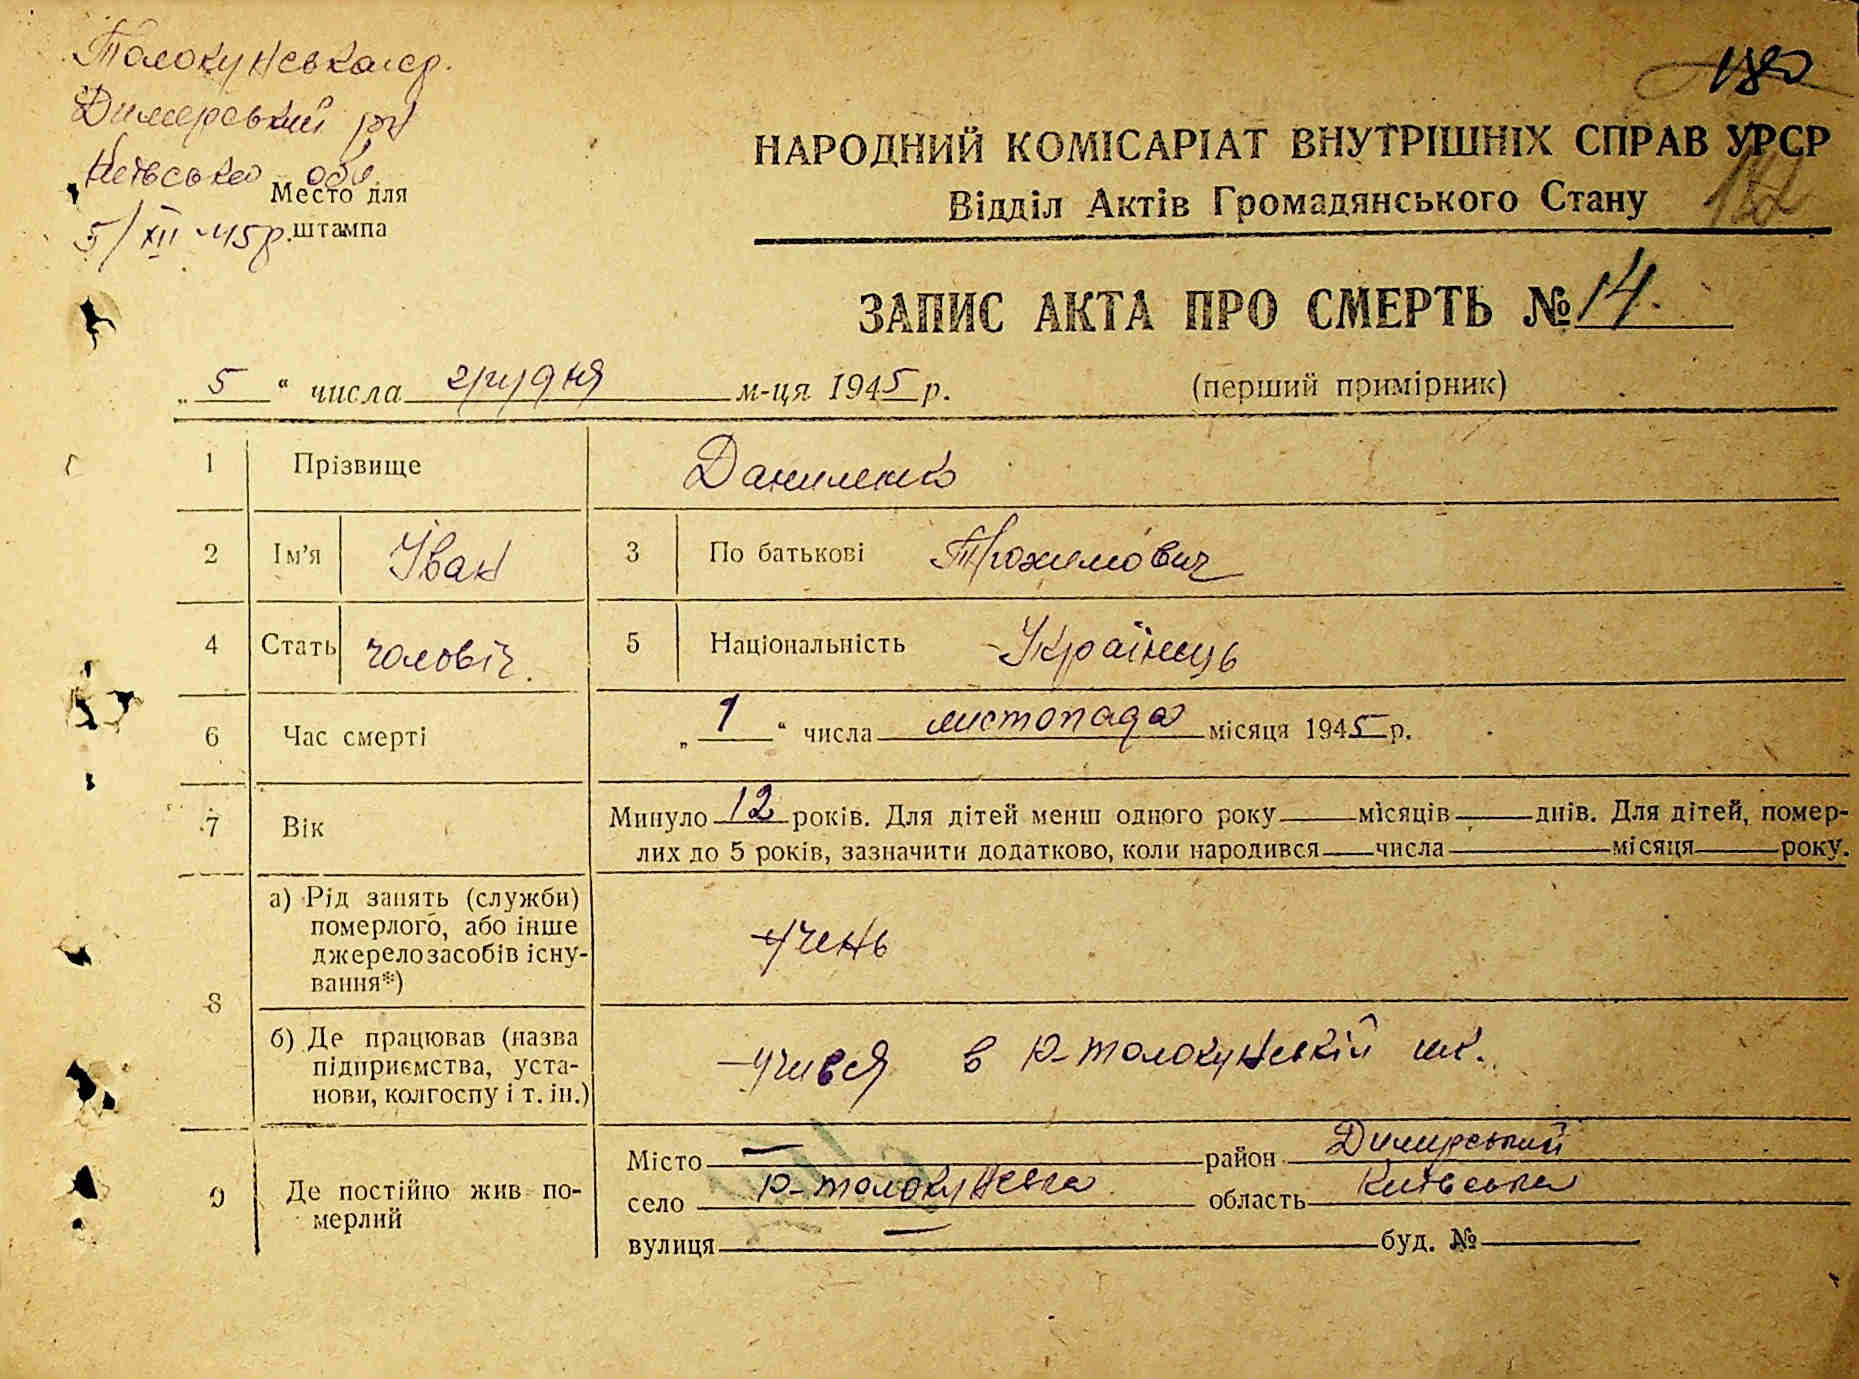 Толокунська с.р.
Димерський р-н
Київська обл
Место для
5/XII-45р. штампа
180
НАРОДНИЙ КОМІСАРІАТ ВНУТРІШНІХ СПРАВ УРСР
Відділ Актів Громадянського Стану
182
ЗАПИС АКТА ПРО СМЕРТЬ № 14.
„5“ числа грудня м-ця 1945 р. (перший примірник)
1 Прізвище Даниленко
2 Ім’я Іван 3 По батькові Трохимович
4 Стать чоловіч. 5 Національність Українець
6 Час смерті „1“ числа листопада місяця 1945 р.
7 Вік Минуло 12 років. Для дітей менш одного року місяців днів. Для дітей, помер-
лих до 5 років, зазначити додатково, коли народився числа місяця року.
8 а) Рід занять (служби)
померлого, або інше
джерело засобів існу-
вання*)
учень
б) Де працював (назва
підприємства, уста-
нови, колгоспу і т. ін.)
учився в Р-Толокунській шк.
9 Де постійно жив по-
мерлий
Місто — район Димерський
село Р-Толокунська область Київська
вулиця — буд. №